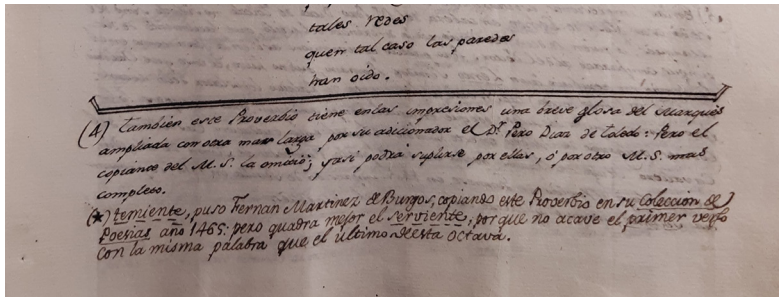 tales redes
quen tal caso las paredes
han oido.
(4) tambien este Proverbio tiene enlas impresiones una breve glosa del Marques
ampliada con otra mas larga por su adicionador el Dr. Pero Diaz de Toledo: Pero el
copiante del M.S. la omitió; yasi podrá suplirse por ellas, ó por otro M.S. mas
completo.
(*) temiente, puso Fernan Martinez de Burgos, copiando este Proverbio en su Coleccion de
Poesias año 1465: pero quadra mejor el serviente, porque no acave el primer verso
con la misma palabra que el ultimo desta octava.